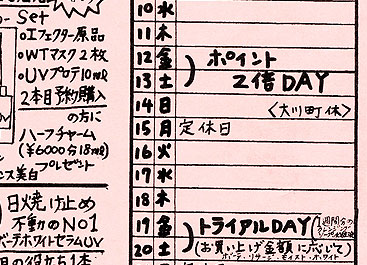 Set
○エフェクター原品
○WTマスク2枚
○UVプロテ10ml
2本目予約購入
の方に
ハーフチャーム
(¥6000分18ml)
プレゼント
美白
日焼け止め
不動のNO1
ホワイトセラムUV
10 水
11 木
12 金 ポイント
13 土 2倍DAY
14 日 〈大川町休〉
15 月 定休日
16 火
17 水
18 木
19 金 トライアルDAY
20 土 (お買い上げ金額に応じて)